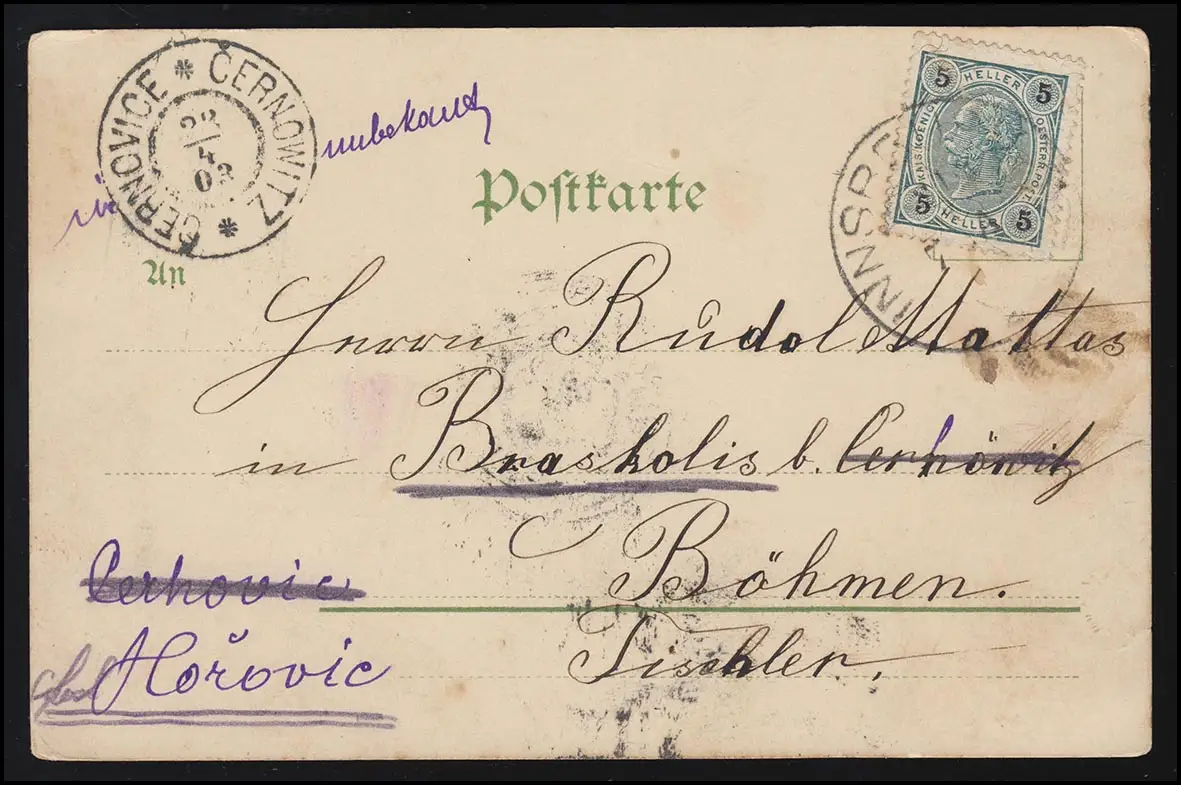 ČERNOVICE * ČERNOWITZ *
22/4 03
unbekannt
Postkarte
5 HELLER 5
KAIS. KOENIGL. OESTERR. POST.
5 HELLER 5
INNSBR
An
Herrn Rudol Mattas
in Braskolis b. Cerhowitz
Böhmen.
Tischler.
Cerhovic
Hořovic